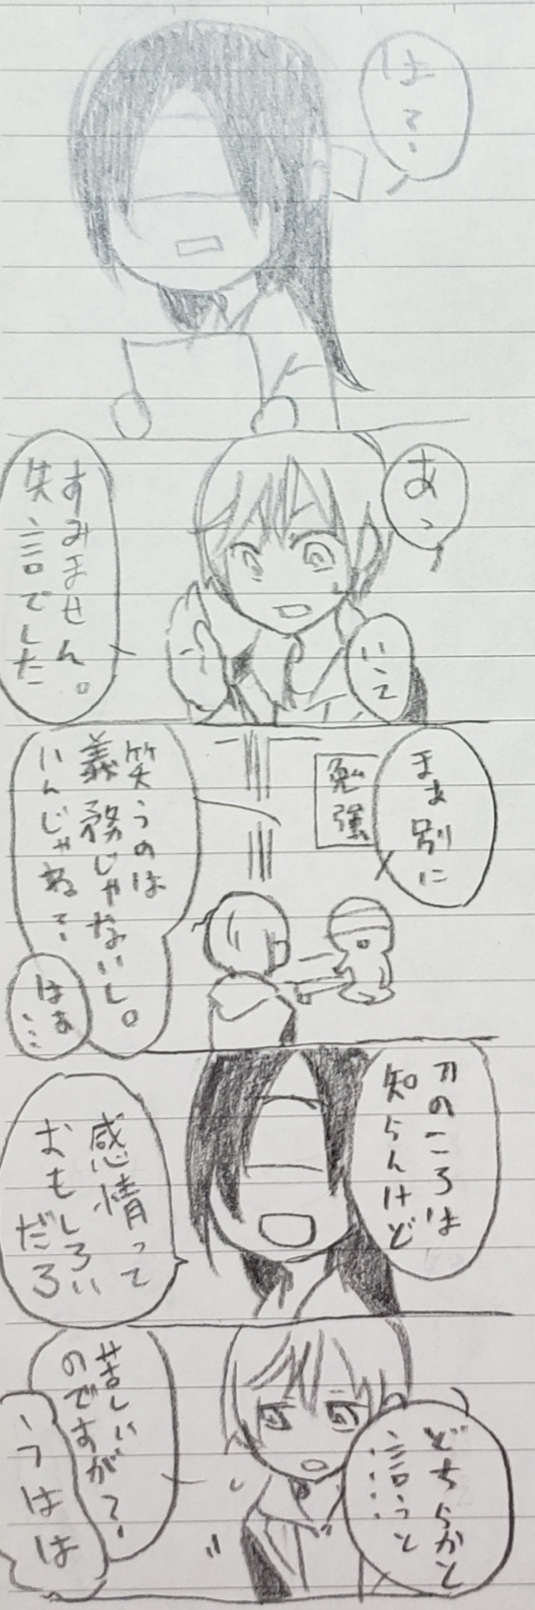 はて。
あっ
いて
すみません。
失言でした
まぁ別に
勉強
笑うのは
義務じゃないし。
いんじゃね?
はぁ
…
刀のころは
知らんけど
感情って
おもしろい
だろ
どちらかと
言うと
……
苦しい
のですが?
うはは